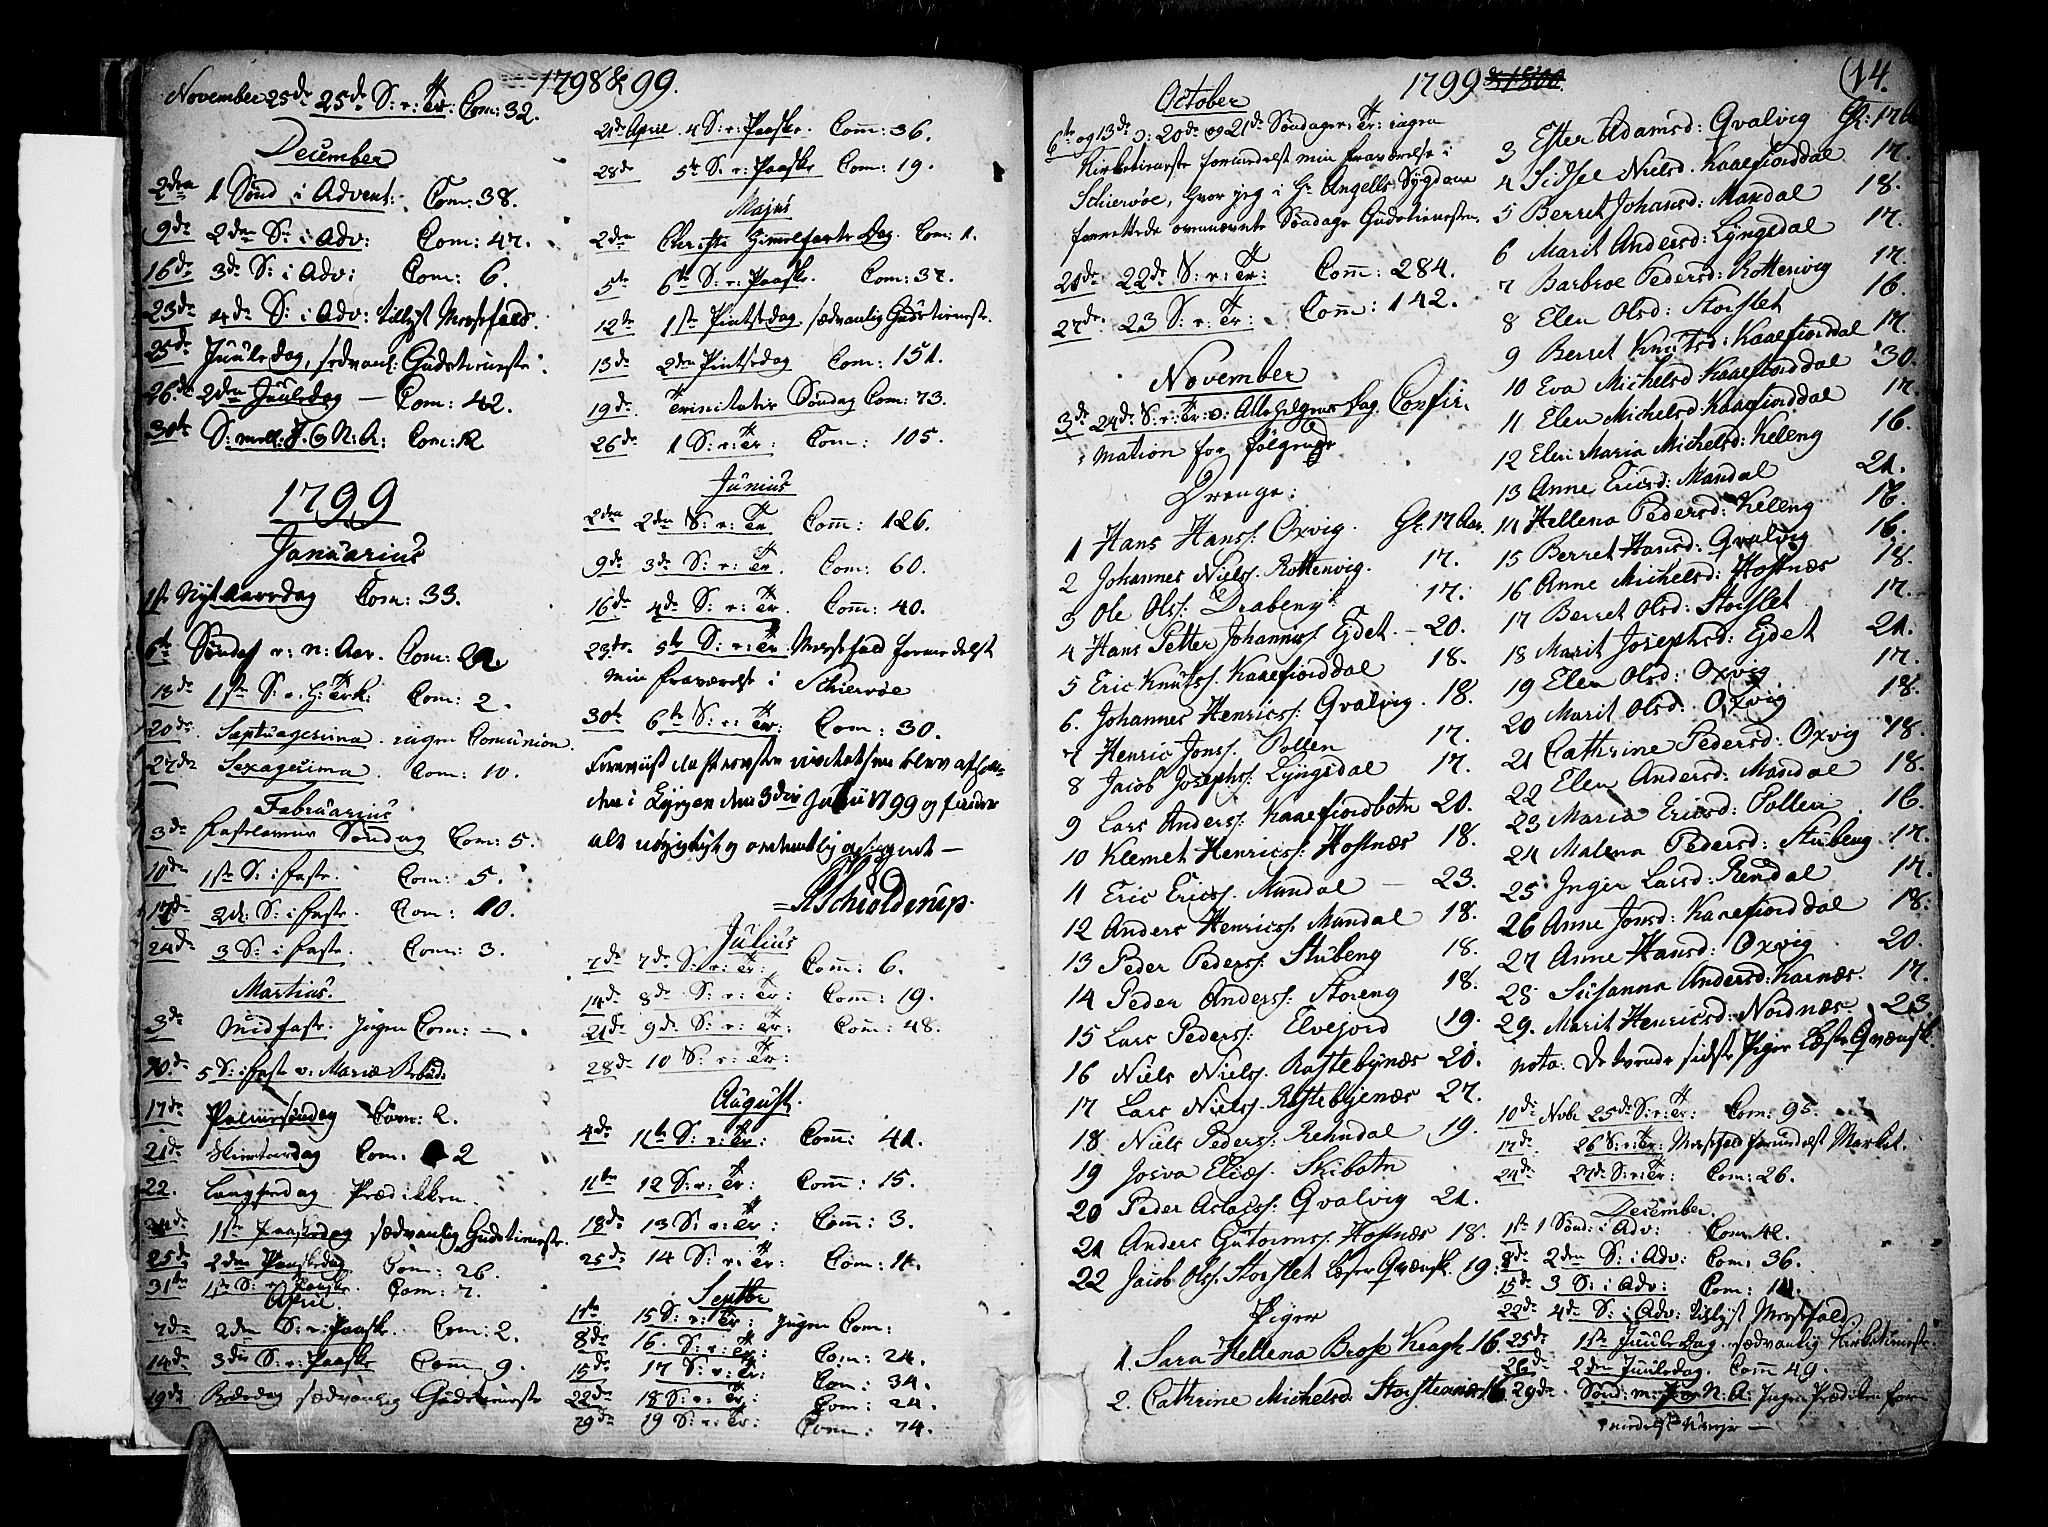 1798 & 99.
November 25de 25de S: e: Tr: Com: 32.
December
2den 1 Sönd i Advent: Com: 38.
9de 2den Sn i Adv: Com: 47.
16de 3de S: i Adv: Com: 6.
23de 4de S: i Adv: tillyst Messefald.
25de Juuledag, sædvanl: Gudstieneste
26de 2den Juuledag — Com: 42.
30te S: mell: J. & N: A: Com: 12
1799
Januarius
1ste Nyt Aarsdag Com: 33.
6te Søndag e: n: Aar. Com:
13de 1ste S. e. H: Trek: Com: 2.
20de Septuagesima ingen Comunion
27de Sexagesima. Com: 10.
Februarius
3de Fastelavns Søndag Com: 5.
10de 1ste S: i Faste. Com: 5.
17de 2de S: i Faste. Com: 10.
24de 3 S: i Faste. Com: 3.
Martius.
3de Midfaste. Ingen Com: —
10de 5 S: i Faste o: Mariæ Bebud:
17de Palmesøndag Com: 2.
21de Skiertorsdag Com. 2
22. Langfredag Prædikken.
24de 1ste Paaskedag sædvanlig Gudstieneste.
25de 2den Paaskedag Com: 26.
31te 1ste S: e: Paaske. Com: 7.
April.
7de 2den S: e: Paaske. Com: 2.
14de 3die S: e: Paaske Comm 9.
19de Bededag sædvanlig Gudstieneste
21de April. 4 S: e: Paaske. Comm: 36.
28de 5te S. e: Paaske Com: 19.
Majus
2den Christi Himmelfarts Dag. Com: 1.
5te 6te S: e: Paaske. Com: 37.
12te 1ste Pintsedag, sædvanlig Gudstieneste.
13de 2den Pintsedag Com: 151.
19de Trinitatis Søndag Com: 73.
26de 1 S: e: Tr: Com: 105.
Junius
2den 2den S: e: Tr Comm: 126.
9de 3de S: e: Tr. Com: 60.
16de 4de S: e: Tr. Comm: 40.
23de 5te S: e: Tr. Messefald formedelst
min Fraværelse i Schiervøe
30te 6te S: e: Tr: Com: 30.
den i Lyngen den 3die Julii 1799 og
alt rigtigt og ordentlig
Schiolderup.
Julius
7de 7de S: e: Tr: Comm: 6.
14de 8de S: e: Tr: Comm: 19.
21de 9de S: e: Tr: Comm: 48.
28de 10 S: e: Tr:
August.
4de 11te S: e: Tr: Comm: 41.
11te 12 S: e: Tr: Comm: 15.
18de 13 S: e: Tr: Comm: 3.
25de 14 S: e: Tr: Com: 11.
Septbr
1ste 15 S: e: Tr: Ingen Com:
8de 16. S: e: Tr: Com: 24.
15de 17 S: e: Tr: Com: 34.
22de 18 S: e: Tr: Com: 24.
29de 19 S: e: Tr: Com: 74.
1799 & 1800. 14.
October
6te og 13de o: 20de og 21de Søndager e: Tr: ingen
Kirketieneste formedelst min Fraværelse i
Schiervøe, hvor jeg i Hr Angells Sygdom
forrettede ovennævnte Søndage Gudstienesten.
20de 22de S: e: Tr: Comm: 284.
27de 23 S: e: Tr: Comm: 142.
November
3de 24de S: e: Tr: o: Alle Helgens Dag. Confir-
mation for følgende
Drenge:
1 Hans Hanss: Oxvig. Gl: 17 Aar.
2 Johannes Nielss. Rottenvig. 17.
3 Ole Olss: Drabeng 17.
4 Hans Petter Johanniss: Ejdet. — 20.
5 Eric Knutss. Kaaefjorddal 18.
6. Johannes Henricss: Qvalvig. 18.
7 Henric Jonss. Pollen 17.
8 Jacob Josephss: Lyngsdal 17.
9 Lars Anderss: Kaaefjordbotn 20.
10 Klemet Henricss: Hosnæs 18.
11 Eric Ericss. Mandal — 23.
12 Anders Henricss. Mandal 18.
13 Peder Pederss: Stubeng 18.
14 Peder Anderss: Storeng 18.
15 Lars Pederss. Elvejord 19.
16 Niels Nielss. Rastebynæs 20.
17 Lars Nielss. Rastebyenæs 27.
18. Niels Pederss. Rehndal 19.
19 Josva Eliæs. Skibotn
20 Peder Aslacss: Qvalvig 21.
21 Anders Gutormss. Hosnæs 18.
22 Jacob Olss. Storslet Læste Qvænsk. 19.
Piger
1. Sara Hellena Brose Kragh 16.
2. Cathrine Michelsd: 16.
3 Ester Adamsd: Qvalvig Gl: 17
4 Sidsel Nielsd. Kaaefiorddal 17.
5 Berret Johansd: Mandal 18.
6 Marit Andersd: Lyngsdal 17.
7 Barbroe Pedersd: Rottenvig 17.
8 Elen Olsd: Storslet 16.
9 Berret Knutsd: Kaaefiorddal 17.
10 Eva Michelsd Kaaefiorddal 30.
11 Elen Michelsd: Kaaefiorddal 17.
12 Elen Maria Michelsd: Keleng 16.
13 Anne Ericsd: Mandal 21.
14 Hellena Pedersd: Keleng 16.
15 Berret Hansd: Qvalvig 16.
16 Anne Michelsd: Hosnæs 18.
17 Berret Olsd: Storslet 17.
18 Marit Josephsd: Ejdet 21.
19 Elen Olsd: Oxvig 17.
20 Marit Olsd: Oxvig 18.
21 Cathrine Pedersd: Oxvig 18.
22 Elen Andersd: Mandal 18.
23 Maria Ericsd: Pollen 16.
24 Malena Pedersd: Stubeng 17.
25 Inger Larsd: Rendal 17.
26 Anne Jonsd: Kaaefiorddal 18.
27 Anne Hansd: Oxvig 20.
28 Susanna Andersd: Karnæs. 17.
29. Marit Henricsd: Nordnæs 23.
nota: De tvende sidste Piger Læste Qvænsk.
10de Nobr 25de S: e: Tr: Com: 95.
17de 26 S: e: Tr: Messefald formedelst Market.
24de 27de S: e: Tr: Com: 26.
December.
1ste 1 Sønd: i Adv: Com: 42.
8de 2den S: i Adv: Com: 36.
15de 3 S: i Adv: Com: 11.
22de 4de S: i Adv: tillyst Messefald
25de 1ste Juuledag, sædvanlig Kirketieneste
26de 2den Juuledag Comm 49.
29de Sønd: m: J & N: A: Ingen Prædiken form-
edelst Uvejr —